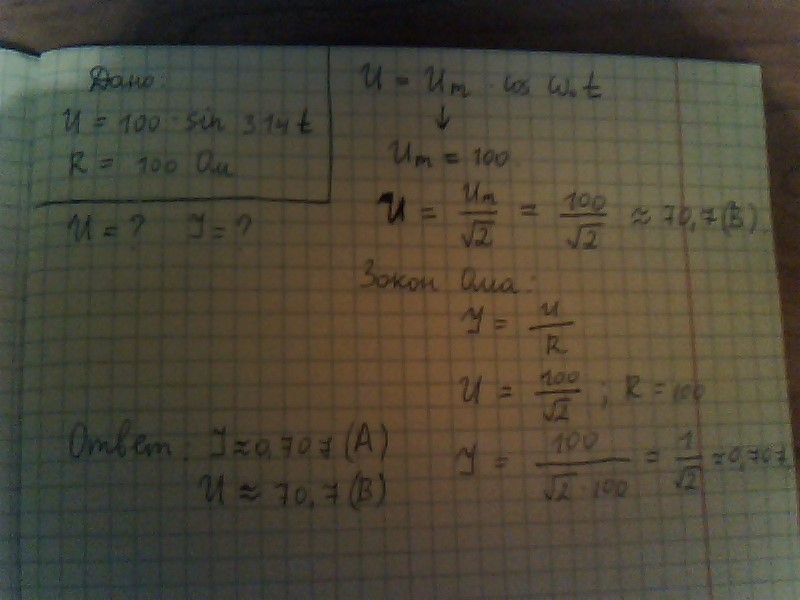 Дано:
u = 100 · sin 314 t
R = 100 Ом
U = ? I = ?
u = Um · cos ω₀ t
↓
Um = 100
U = Um/√2 = 100/√2 ≈ 70,7 (В)
Закон Ома:
I = U/R
U = 100/√2 ; R = 100
I = 100/(√2 · 100) = 1/√2 ≈ 0,707
Ответ: I ≈ 0,707 (А)
U ≈ 70,7 (В)